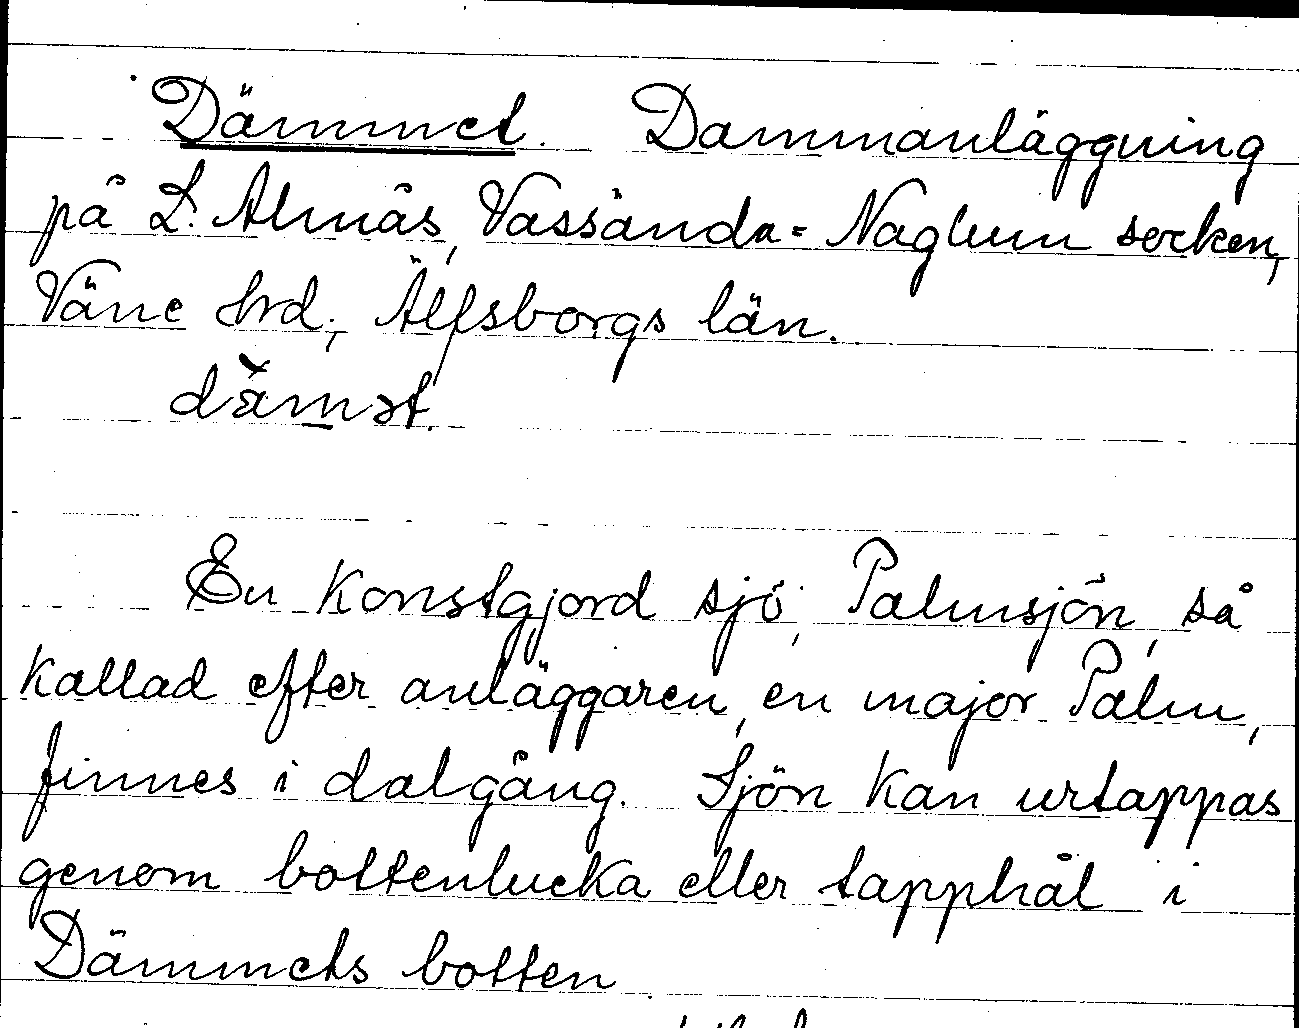 Dämmet. Dammanläggning
på L. Almås, Vassända-Naglum socken,
Väne hrd., Älfsborgs län.
En konstgjord sjö, Palmsjön, så
kallad efter anläggaren, en major Palm,
finnes i dalgång. Sjön kan urtappas
genom bottenlucka eller tapphål i
Dämmets botten